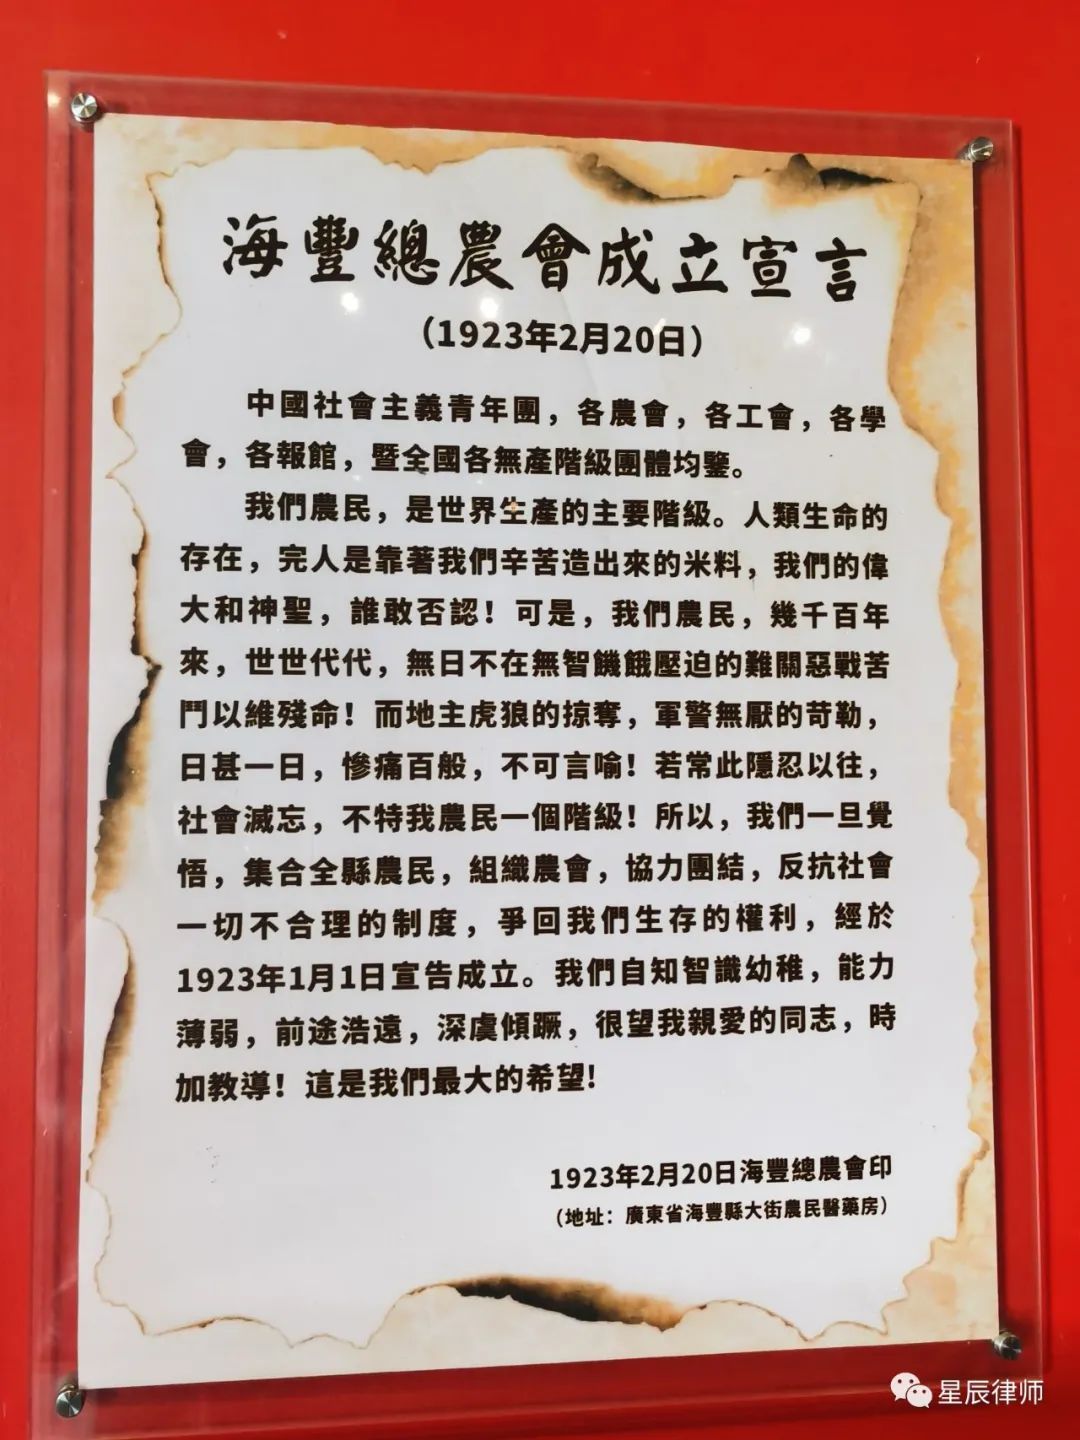 海豐總農會成立宣言
（1923年2月20日）
中國社會主義青年團，各農會，各工會，各學
會，各報館，暨全國各無產階級團體均鑒。
我們農民，是世界生產的主要階級。人類生命的
存在，完人是靠著我們辛苦造出來的米料，我們的偉
大和神聖，誰敢否認！可是，我們農民，幾千百年
來，世世代代，無日不在無智饑餓壓迫的難關惡戰苦
鬥以維殘命！而地主虎狼的掠奪，軍警無厭的苛勒，
日甚一日，慘痛百般，不可言喻！若常此隱忍以往，
社會滅忘，不特我農民一個階級！所以，我們一旦覺
悟，集合全縣農民，組織農會，協力團結，反抗社會
一切不合理的制度，爭回我們生存的權利，經於
1923年1月1日宣告成立。我們自知智識幼稚，能力
薄弱，前途浩遠，深虞傾蹶，很望我親愛的同志，時
加教導！這是我們最大的希望！
1923年2月20日海豐總農會印
（地址：廣東省海豐縣大街農民醫藥房）
星辰律师